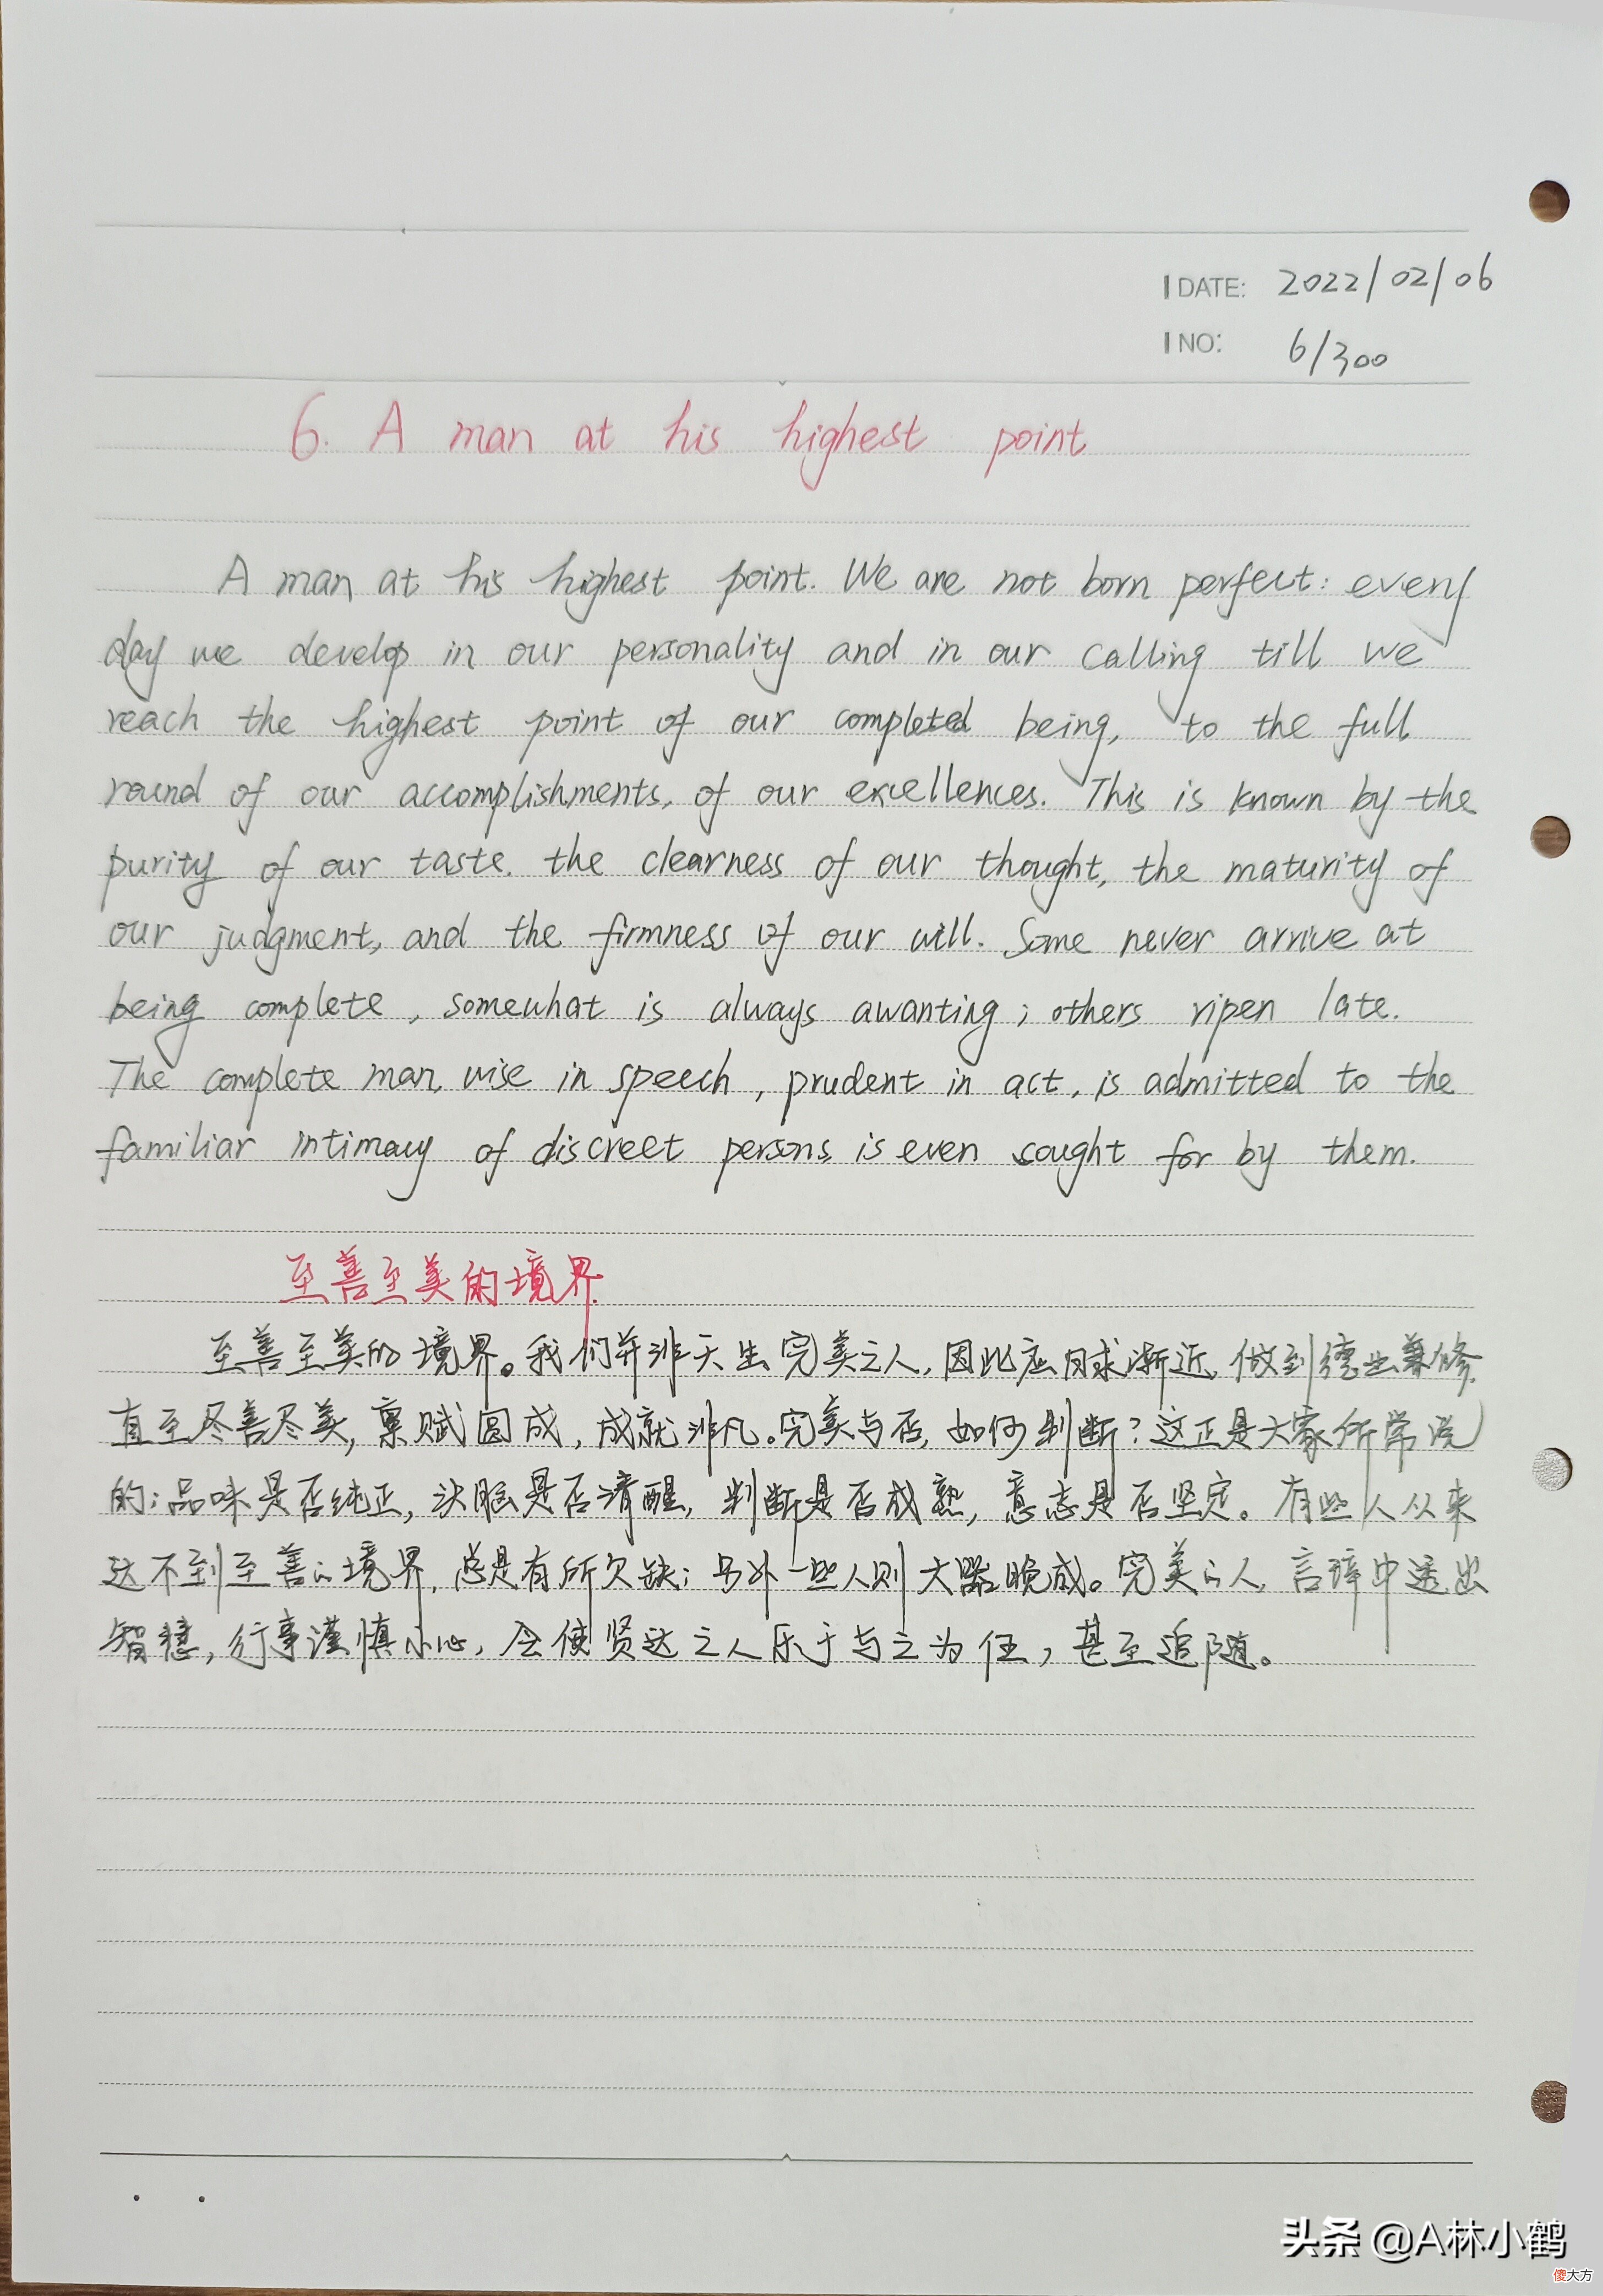 DATE: 2022/02/06
NO: 6/300
6. A man at his highest point
A man at his highest point. We are not born perfect: every
day we develop in our personality and in our calling till we
reach the highest point of our completed being, to the full
round of our accomplishments, of our excellences. This is known by the
purity of our taste. the clearness of our thought, the maturity of
our judgment, and the firmness of our will. Some never arrive at
being complete, somewhat is always awanting; others ripen late.
The complete man, wise in speech, prudent in act, is admitted to the
familiar intimacy of discreet persons, is even sought for by them.
至善至美的境界.
至善至美的境界。我们并非天生完美之人,因此应日求渐近,做到德业兼修,
直至尽善尽美,禀赋圆成,成就非凡。完美与否,如何判断?这正是大家所常说
的:品味是否纯正,头脑是否清醒,判断是否成熟,意志是否坚定。有些人从来
达不到至善的境界,总是有所欠缺;另外一些人则大器晚成。完美的人,言辞中透出
智慧,行事谨慎小心,会使贤达之人乐于与之为伍,甚至追随。
头条 @A林小鹤
傻大方